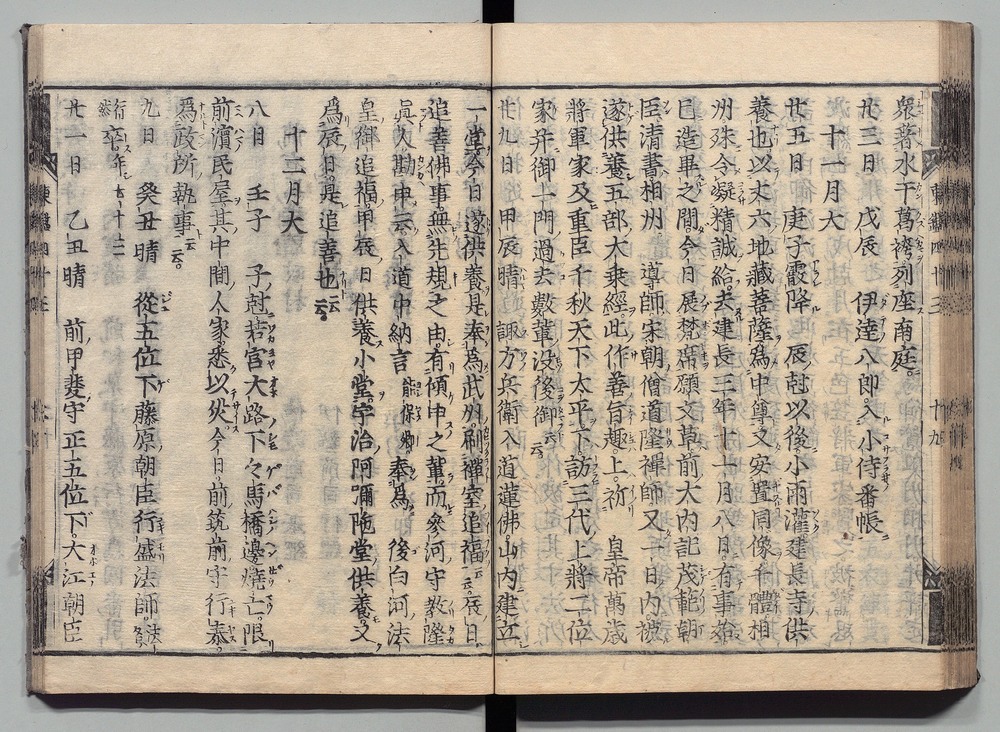 衆著水干葛袴列座南庭。
廿三日　戊辰　伊達八郎入小侍番帳
十一月大
廿五日　庚子霰降　辰尅以後小雨灌建長寺供
養也以丈六地藏菩薩爲中尊又安置同像千體相
州殊令凝精誠給去建長三年十一月八日有事始
已造畢之間今日展梵席願文草前大内記茂範朝
臣清書相州　導師宋朝僧道隆禪師又一日内被
遂供養五部大乘經此作善旨趣上祈　皇帝萬歳
將軍家及重臣千秋天下太平下訪三代上將二位
家并御一門過去數輩没後御云云
廿九日　甲辰晴　諏方兵衛入道蓮佛山内建立
一堂今日遂供養是奉爲武州禪室追福云云辰日
追善佛事無先規之由有傾申之輩而參河守教隆
眞人勘申云入道中納言能保卿奉爲　後白河法
皇御追福甲辰日供養小堂宇治阿彌陀堂供養又
爲辰日是追善也云云
十二月大
八日　壬子　子尅若宮大路下々馬橋邊燒亡限
前濱民屋其中間人家悉以災今日前筑前守行泰
爲政所執事云云
九日　癸丑晴　從五位下藤原朝臣行盛法師法
然卒年七十三
廿一日　乙丑晴　前甲斐守正五位下大江朝臣
十九